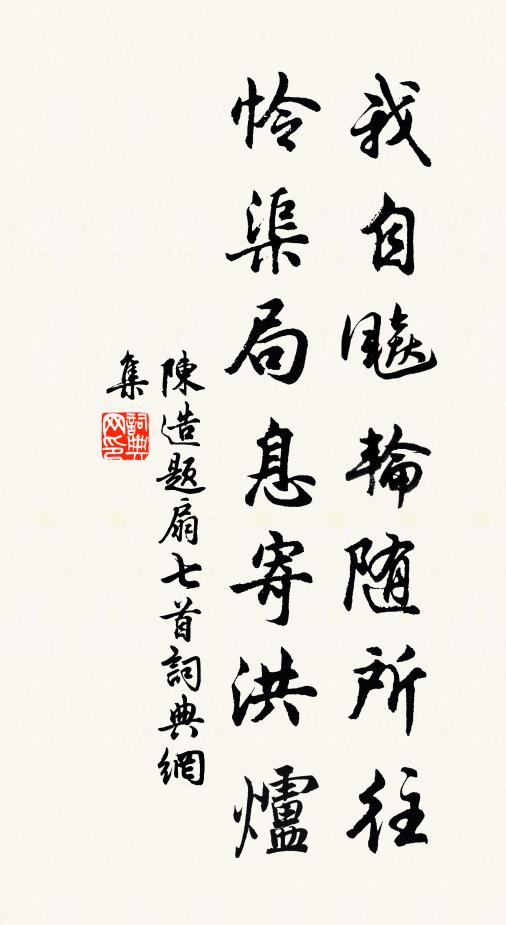 我自飈輪随所往
怜渠局息寄洪爐
陳造题扇七首詞典網
集
詞典
网印